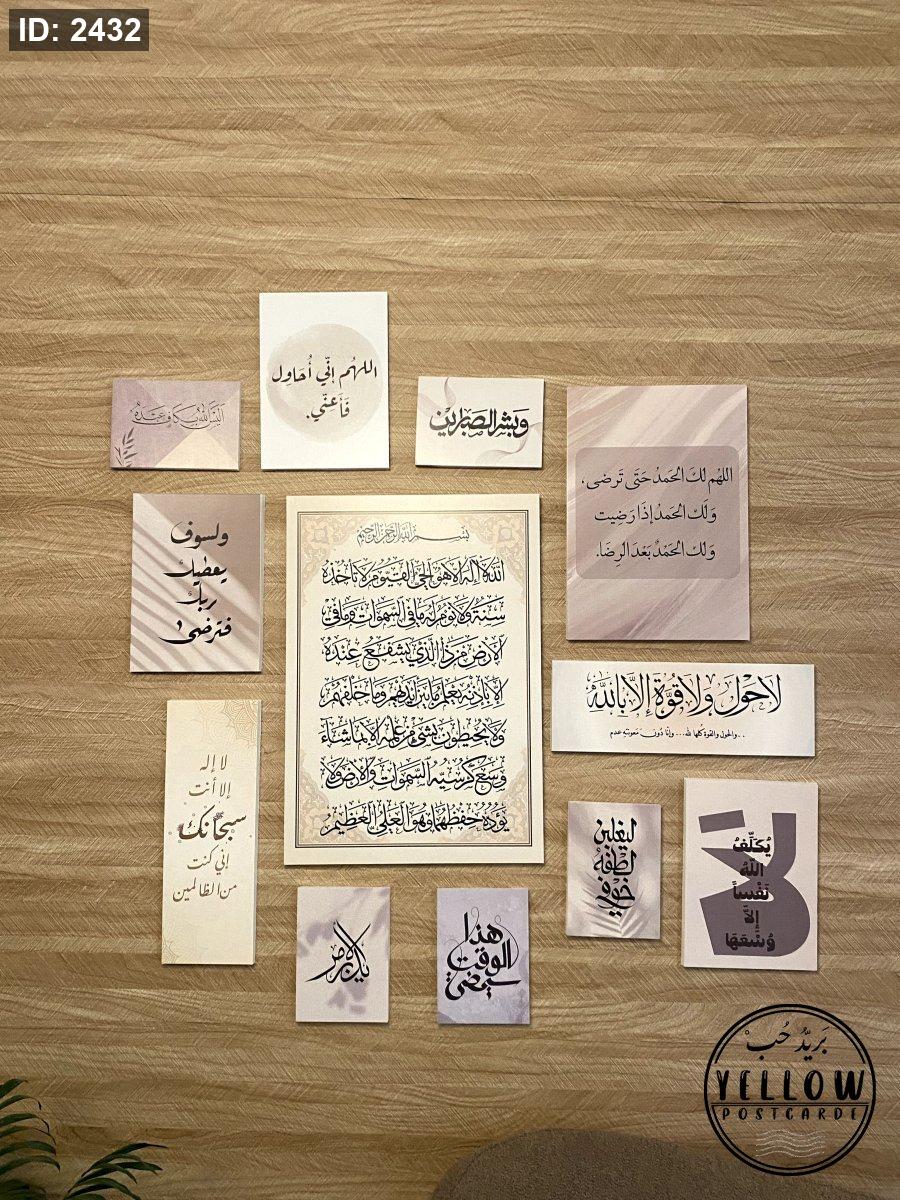 ID: 2432
اللهُم إنّي أُحَاوِل
فَأَعِنّي.
أليس الله بكاف عبده
وَبَشِّرِ الصَّابِرِينَ
اللهُم لَكَ الحَمدُ حَتَى تَرضى،
وَلَكَ الحَمدُ إذَا رَضِيت
وَلَكَ الحَمْدُ بَعَدَ الرِضَا.
ولسوف
يعطيك
ربك
فترضى
بسم الله الرحمن الرحيم
الله لا إله إلا هو الحي القيوم لا تأخذه
سنة ولا نوم له ما في السموات وما في
الأرض من ذا الذي يشفع عنده
إلا بإذنه يعلم ما بين أيديهم وما خلفهم
ولا يحيطون بشيء من علمه إلا بما شاء
وسع كرسيه السموات والأرض ولا
يؤده حفظهما وهو العلي العظيم
لَا حَوْلَ وَلَا قُوَّةَ إِلَّا بِاللَّهِ
..والحول والقوة كلها لله... وإنا دون معونته عدم
لا إله
إلا أنت
سبحانك
إني كنت
من الظالمين
ليغلبن
لطفه
خوفي
لَا
يُكَلِّفُ
اللَّهُ
نَفْساً
إِلَّا
وُسْعَهَا
يدبر الأمر
هذا
الوقت
سيمضي
بَريدُ حُب
YELLOW
POSTCARDE